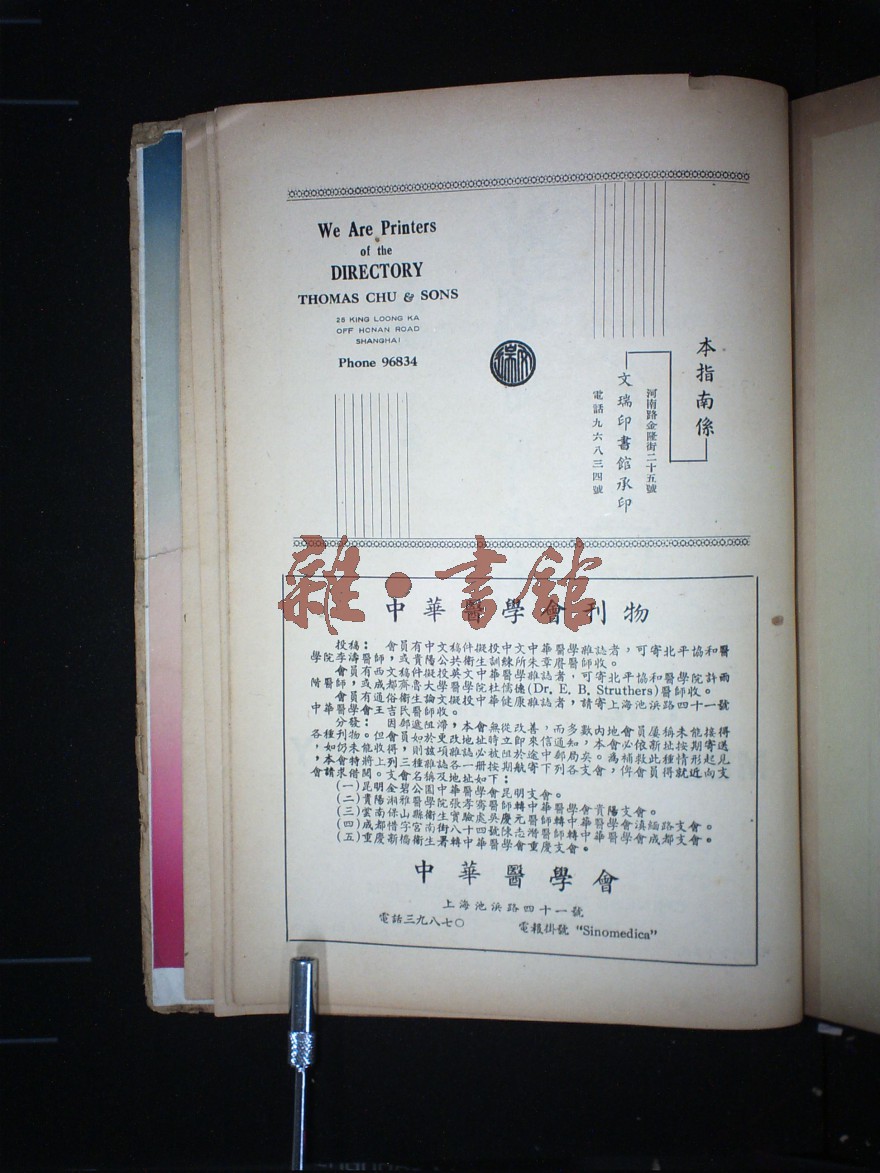 We Are Printers
of the
DIRECTORY
THOMAS CHU & SONS
25 KING LOONG KA
OFF HONAN ROAD
SHANGHAI
Phone 96834
本指南係
河南路金隆街二十五號
文瑞印書館承印
電話九六八三四號
雜·書館
中華醫學會刊物
投稿： 會員有中文稿件擬投中文中華醫學雜誌者，可寄北平協和醫
學院李濤醫師，或貴陽公共衛生訓練所朱章賡醫師收。
會員有西文稿件擬投英文中華醫學雜誌者，可寄北平協和醫學院許雨
階醫師，或成都齊魯大學醫學院杜儒德(Dr. E. B. Struthers)醫師收。
會員有通俗衛生論文擬投中華健康雜誌者，請寄上海池浜路四十一號
中華醫學會王吉民醫師收。
分發： 因郵遞阻滯，本會無從改善，而多數內地會員屢稱未能接得
各種刊物。但會員如於更改地址時立卽來信通知，本會必依新址按期寄送
，如仍未能收得，則該項雜誌必被阻於途中郵局矣。為補救此種情形起見
，本會特將上列三種雜誌各一冊按期航寄下列各支會，俾會員得就近向支
會請求借閱。支會名稱及地址如下：
(一)昆明金碧公園中華醫學會昆明支會。
(二)貴陽湘雅醫學院張孝騫醫師轉中華醫學會貴陽支會。
(三)雲南保山縣衛生實驗處吳慶元醫師轉中華醫學會滇緬路支會。
(四)成都惜字宮南街八十四號陳志潛醫師轉中華醫學會成都支會。
(五)重慶新橋衛生署轉中華醫學會重慶支會。
中華醫學會
上海池浜路四十一號
電話三九八七〇 電報掛號 "Sinomedica"